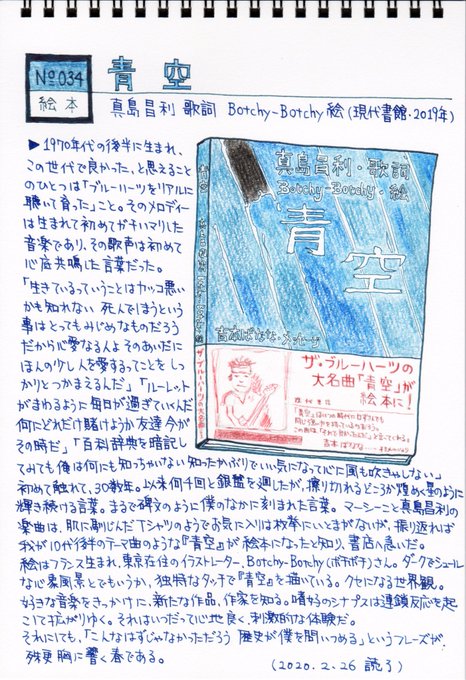 №034
絵本
青空
真島昌利 歌詞 Botchy-Botchy 絵(現代書館・2019年)
▶1970年代の後半に生まれ、
この世代で良かった、と思えること
のひとつは「ブルーハーツをリアルに
聴いて育った」こと。そのメロディー
は生まれて初めてガチハマリした
音楽であり、その歌声は初めて
心底共鳴した言葉だった。
「生きているっていうことはカッコ悪い
かも知れない 死んでしまうという
事はとってもみじめなものだろう
だから心愛なる人よ そのあいだに
ほんの少し人を愛するってことをしっ
かりとつかまえるんだ」「ルーレット
がまわるように毎日が過ぎていくんだ
何にどれだけ賭けようか友達 今が
その時だ」「百科辞典を暗記し
てみても俺は何にも知っちゃいない 知ったかぶりでいい気になって心に風も吹きゃしない」
初めて触れて、30数年。以来何千回と銀盤を廻したが、擦り切れるどころか煌めく星のように
輝き続ける言葉。まるで碑文のように僕のなかに刻まれた言葉。マーシーこと真島昌利の
楽曲は、肌に馴じんだTシャツのようでお気に入りは枚挙にいとまがないが、振り返れば
我が10代後半のテーマ曲のような『青空』が絵本になったと知り、書店へ急いだ。
絵はフランス生まれ、東京在住のイラストレーター、Botchy-Botchy(ボチボチ)さん。ダークでシュール
な心象風景とでもいうか、独特なタッチで『青空』を描いている。クセになる世界観。
好きな音楽をきっかけに、新たな作品、作家を知る。嗜好のシナプスは連鎖反応を起
こして拡がりゆく。それはいつだって心地良く、刺激的な体験だ。
それにしても、「こんなはずじゃなかっただろう 歴史が僕を問いつめる」というフレーズが、
殊更胸に響く春である。
(2020.2.26 読了)
真島昌利・歌詞
Botchy-Botchy・絵
青空
吉本ばなな・メッセージ
ザ・ブルーハーツの
大名曲「青空」が
絵本に!
吉本ばなな